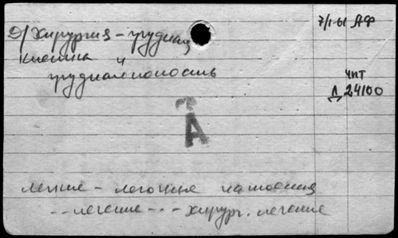 Д/ Хирургия - грудная
клетка и
грудная полость
7/I-61 АФ
чит
Л 24100
А
легкие - легочные нагноения
- - лечение - - - хирург. лечение